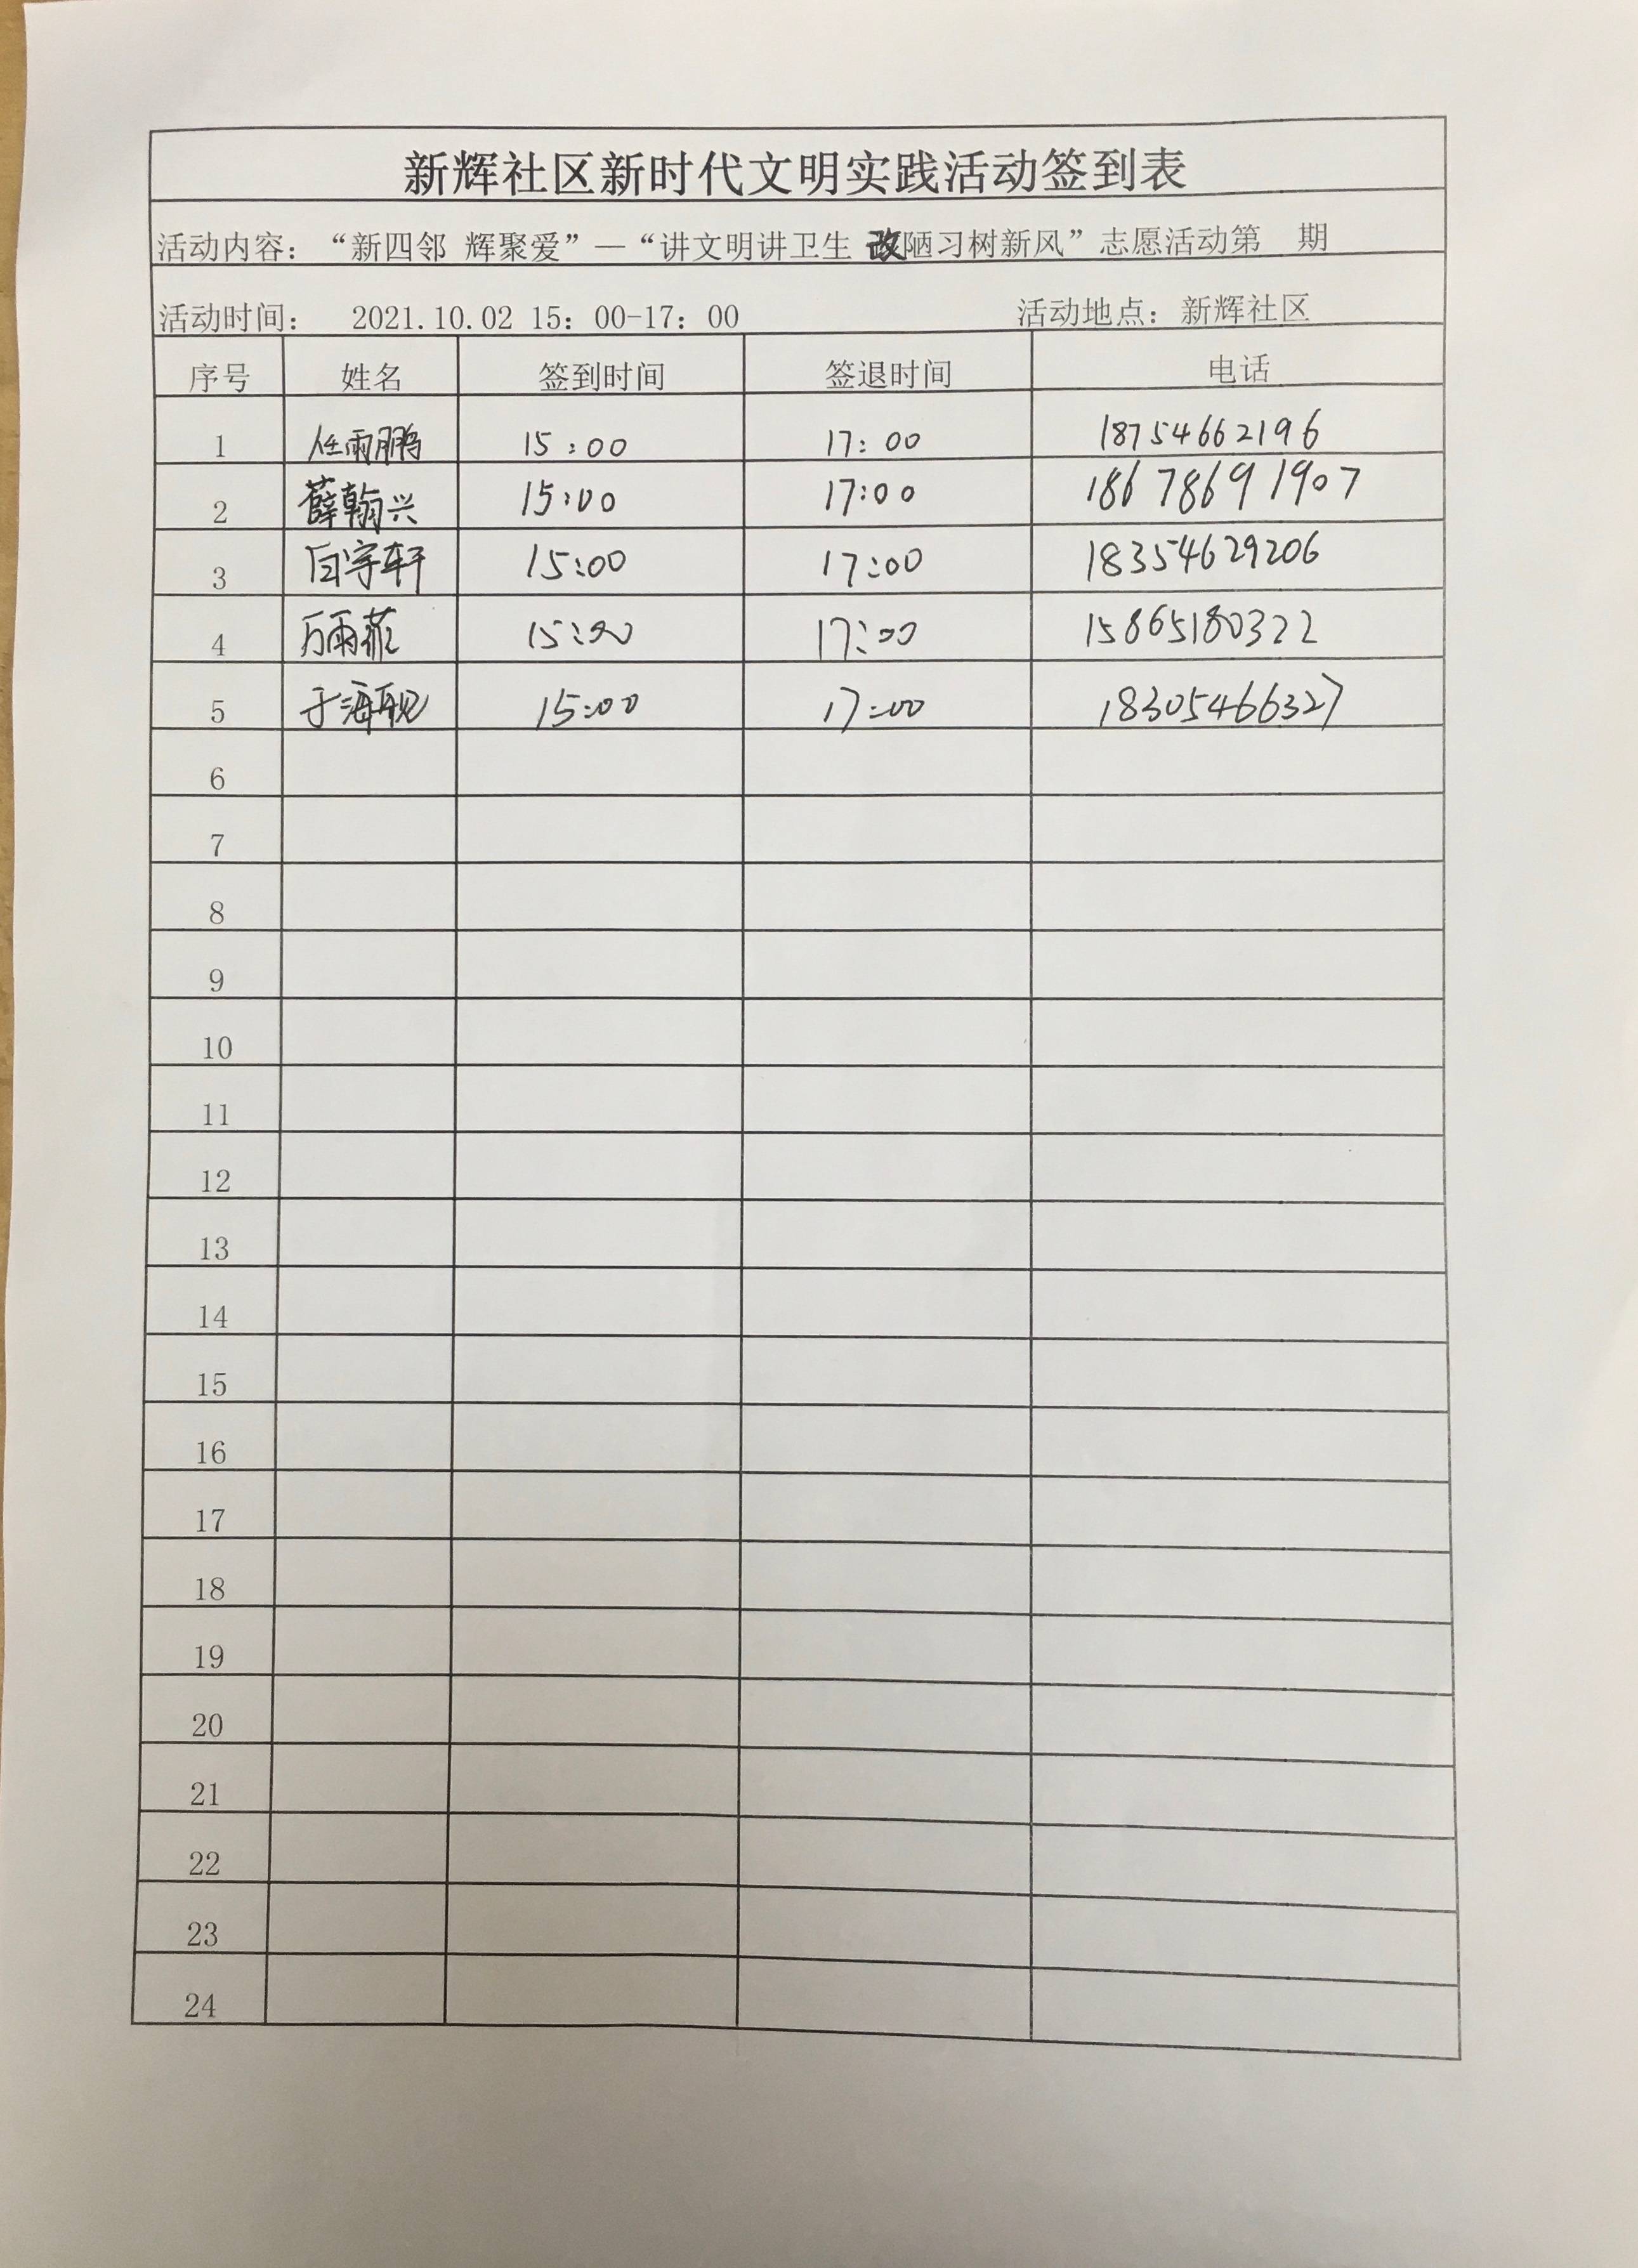 新辉社区新时代文明实践活动签到表
活动内容：“新四邻 辉聚爱”—“讲文明讲卫生 改陋习树新风”志愿活动第 期
活动时间： 2021.10.02 15：00-17：00 活动地点：新辉社区
序号 姓名 签到时间 签退时间 电话
1 任雨鹏 15:00 17:00 18754662196
2 薛翰兴 15:00 17:00 18678691907
3 白宇轩 15:00 17:00 18354629206
4 万雨菲 15:00 17:00 15865180322
5 于海 15:00 17:00 18305466327
6
7
8
9
10
11
12
13
14
15
16
17
18
19
20
21
22
23
24